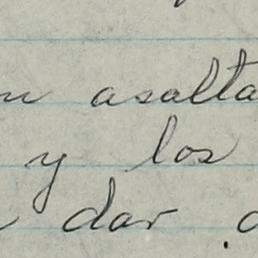 asalta
y los
dar